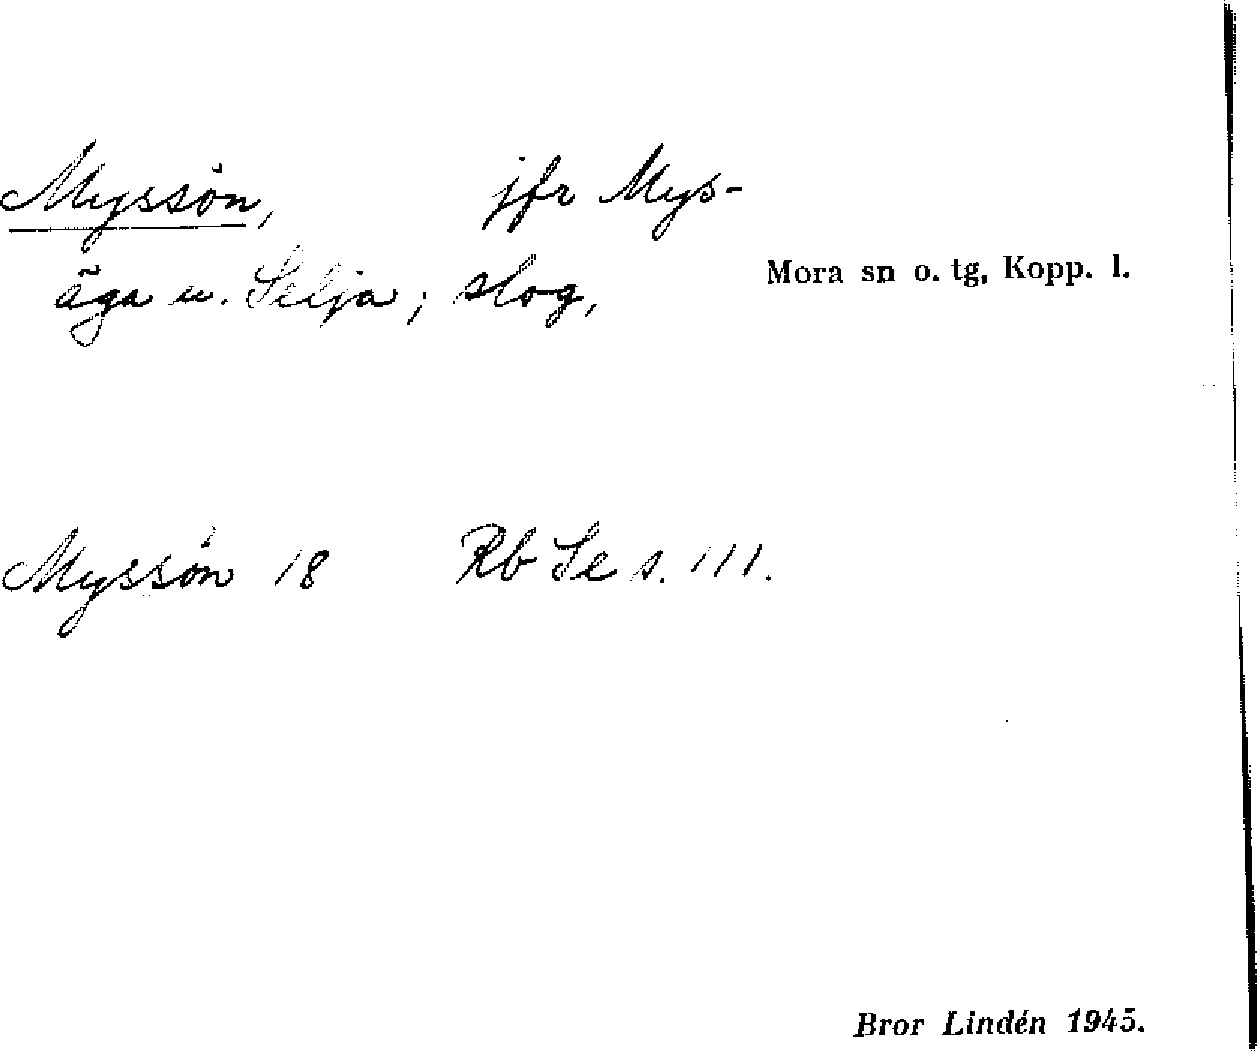 Myssön, jfr Mys-
äga u. Selja; slog,
Mora sn o. tg, Kopp. l.
Myssön 18 Rb Se s. 111.
Bror Lindén 1945.